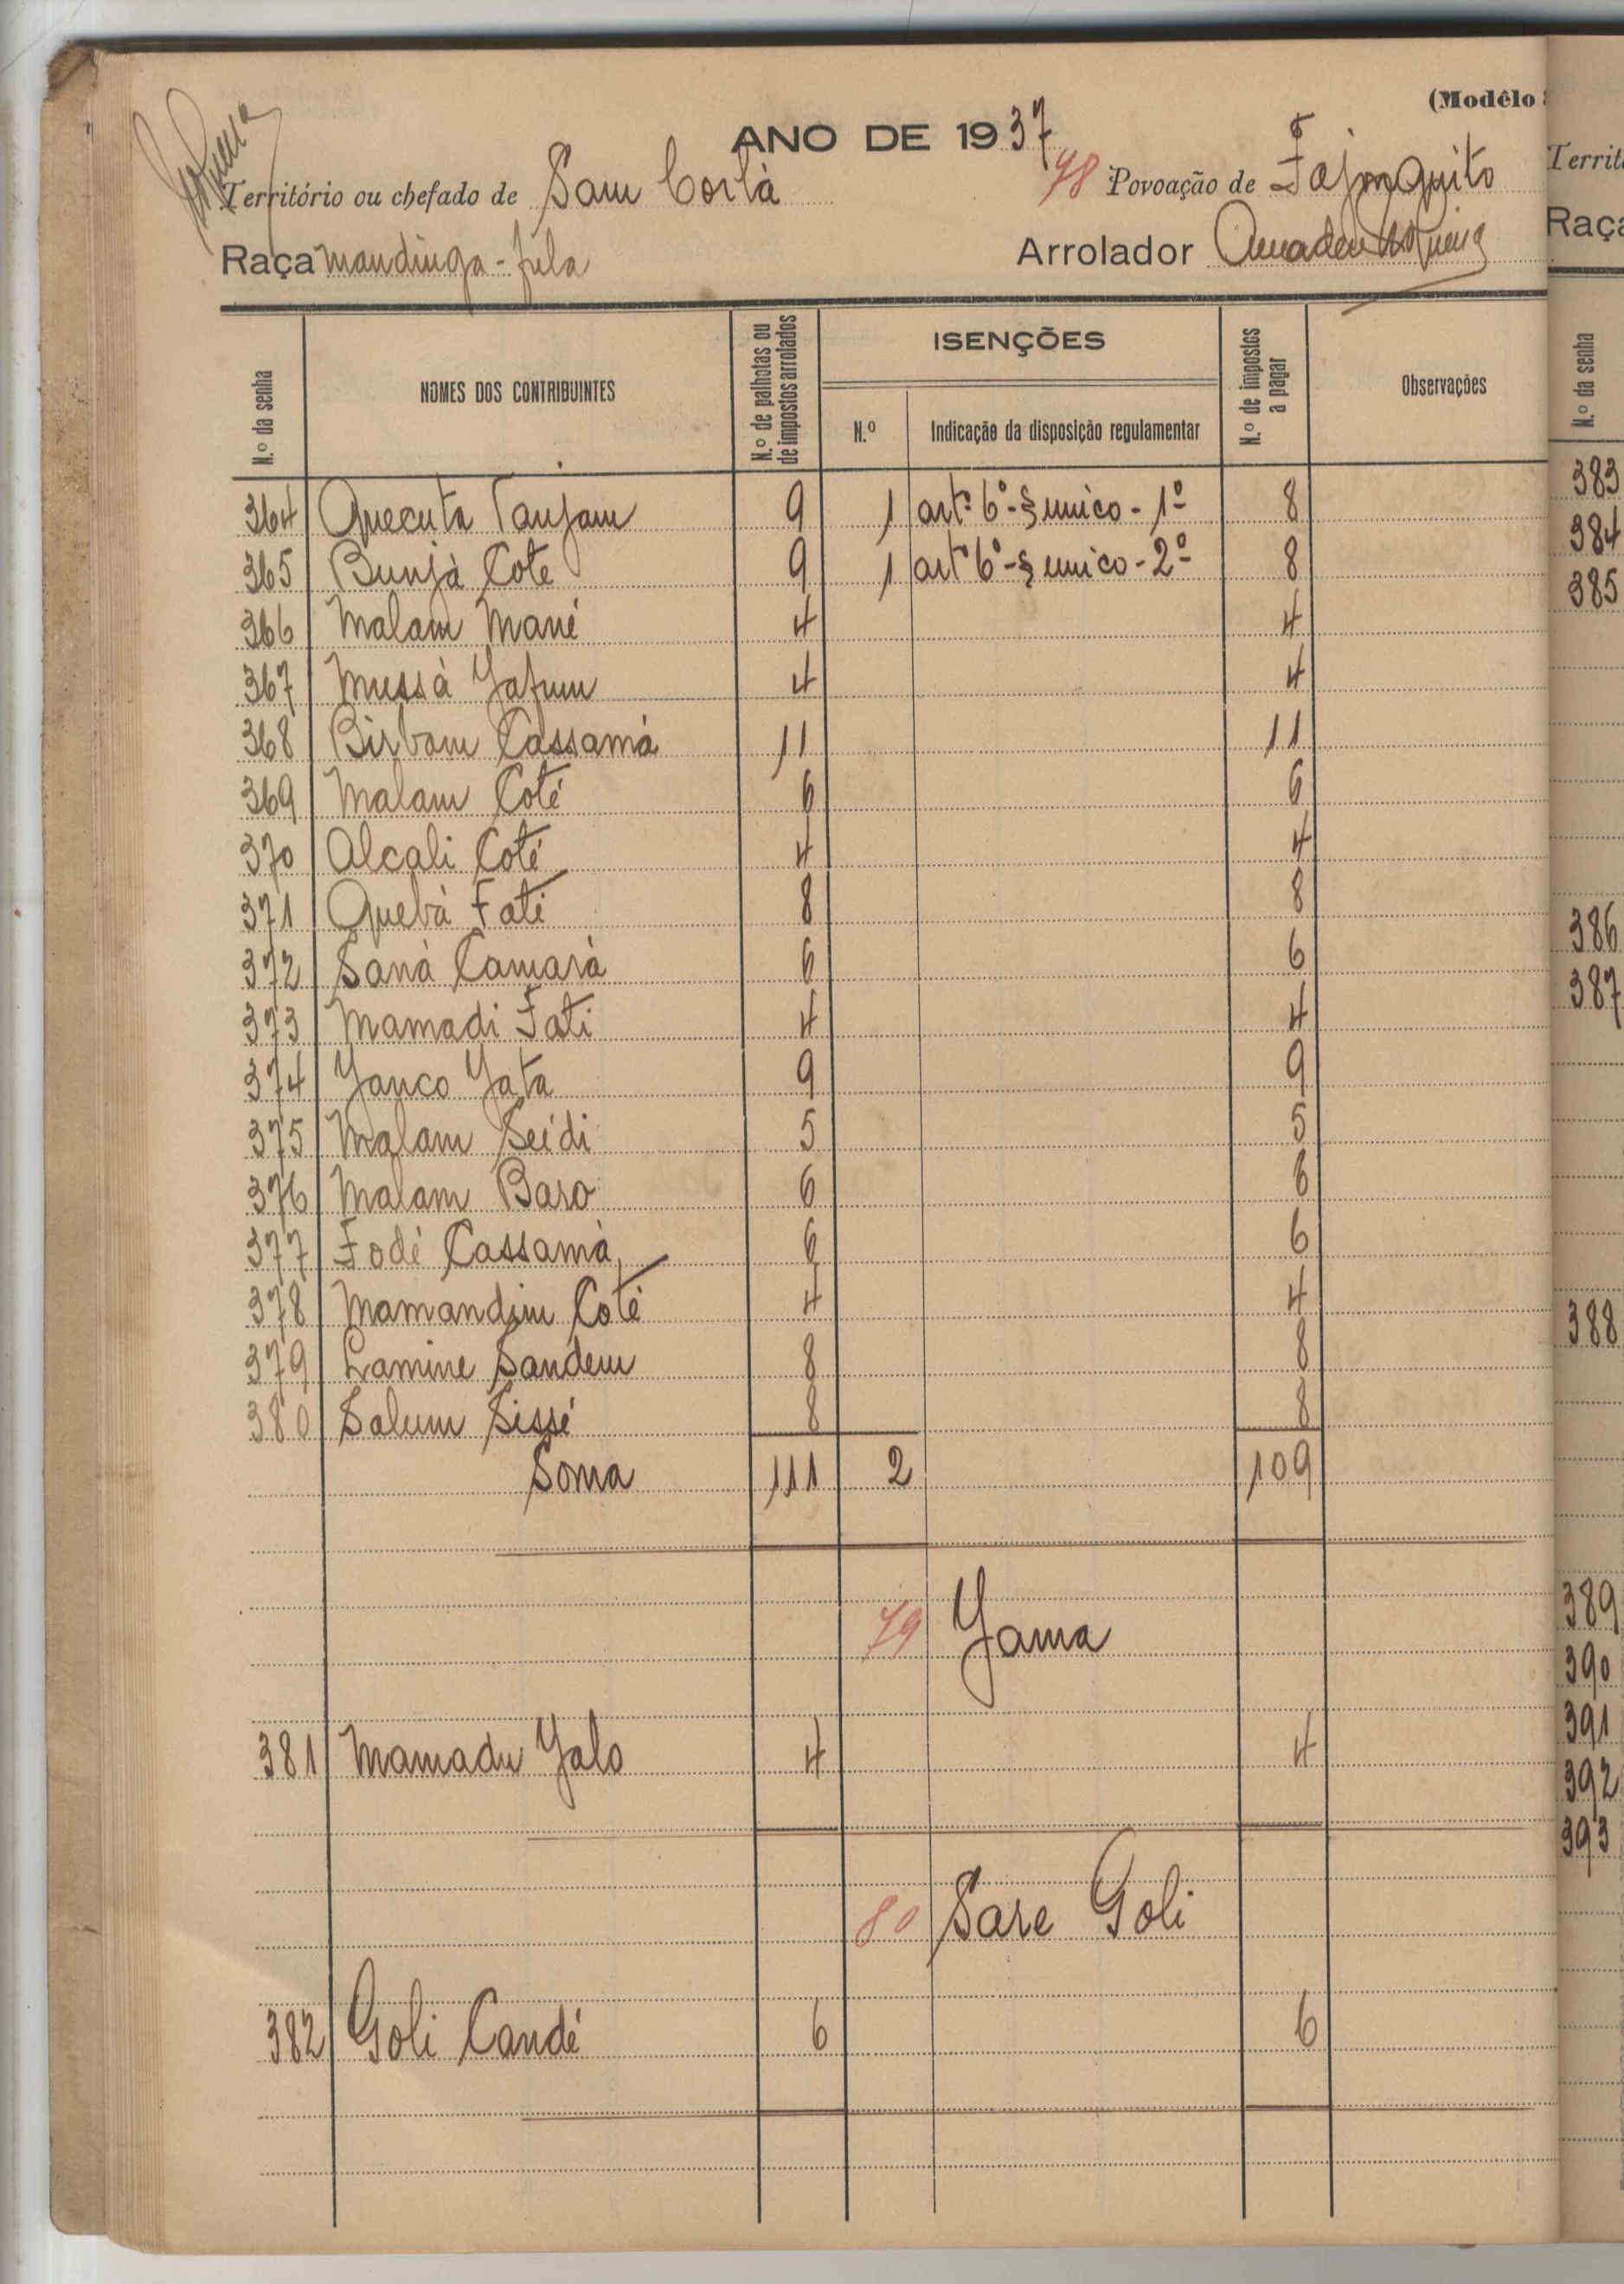 (Modêlo
ANO DE 1937
Território ou chefado de Sam Corlà 78 Povoação de Fajonquito
Raça mandinga-fula Arrolador Amadeu
N.º da senha NOMES DOS CONTRIBUINTES N.º de palhotas ou de impostos arrolados ISENÇÕES N.º Indicação da disposição regulamentar N.º de impostos a pagar Observações
364 Quecuta Tanjam 9 1 artº 6º-§ unico - 1º 8
365 Bunjà Coté 9 1 artº 6º-§ unico - 2º 8
366 Malam Mané 4 4
367 Mussà Jafum 4 4
368 Birbam Cassamà 11 11
369 Malam Coté 6 6
370 Alcali Coté 4 4
371 Quebà Fati 8 8
372 Sanà Camarà 6 6
373 Mamadi Fati 4 4
374 Yanco Yata 9 9
375 Malam Seidi 5 5
376 Malam Baro 6 6
377 Fodé Cassamà 6 6
378 Mamandim Coté 4 4
379 Lamine Sandem 8 8
380 Salum Sissé 8 8
Soma 111 2 109
79 Yama
381 Mamadu Yalo 4 4
80 Sare Goli
382 Goli Candé 6 6
Territ
Raça
N.º da senha
383
384
385
386
387
388
389
390
391
392
393